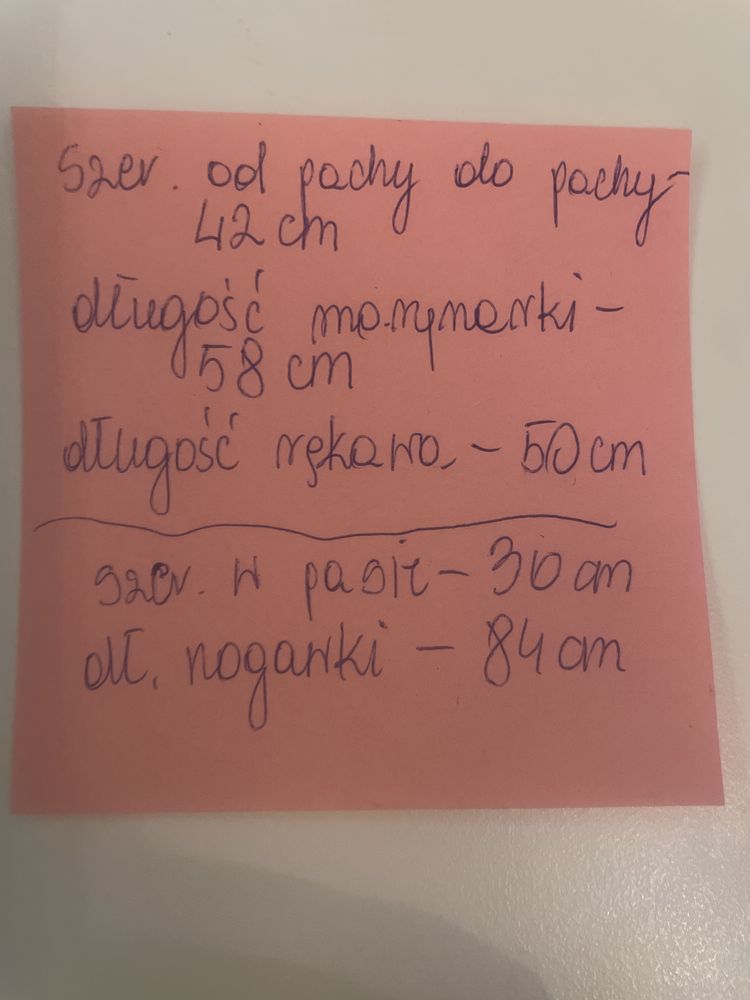 szer. od pachy do pachy-
42 cm
długość marynarki -
58 cm
długość rękawa - 50 cm
szer. w pasie - 30 cm
dł. nogawki - 84 cm